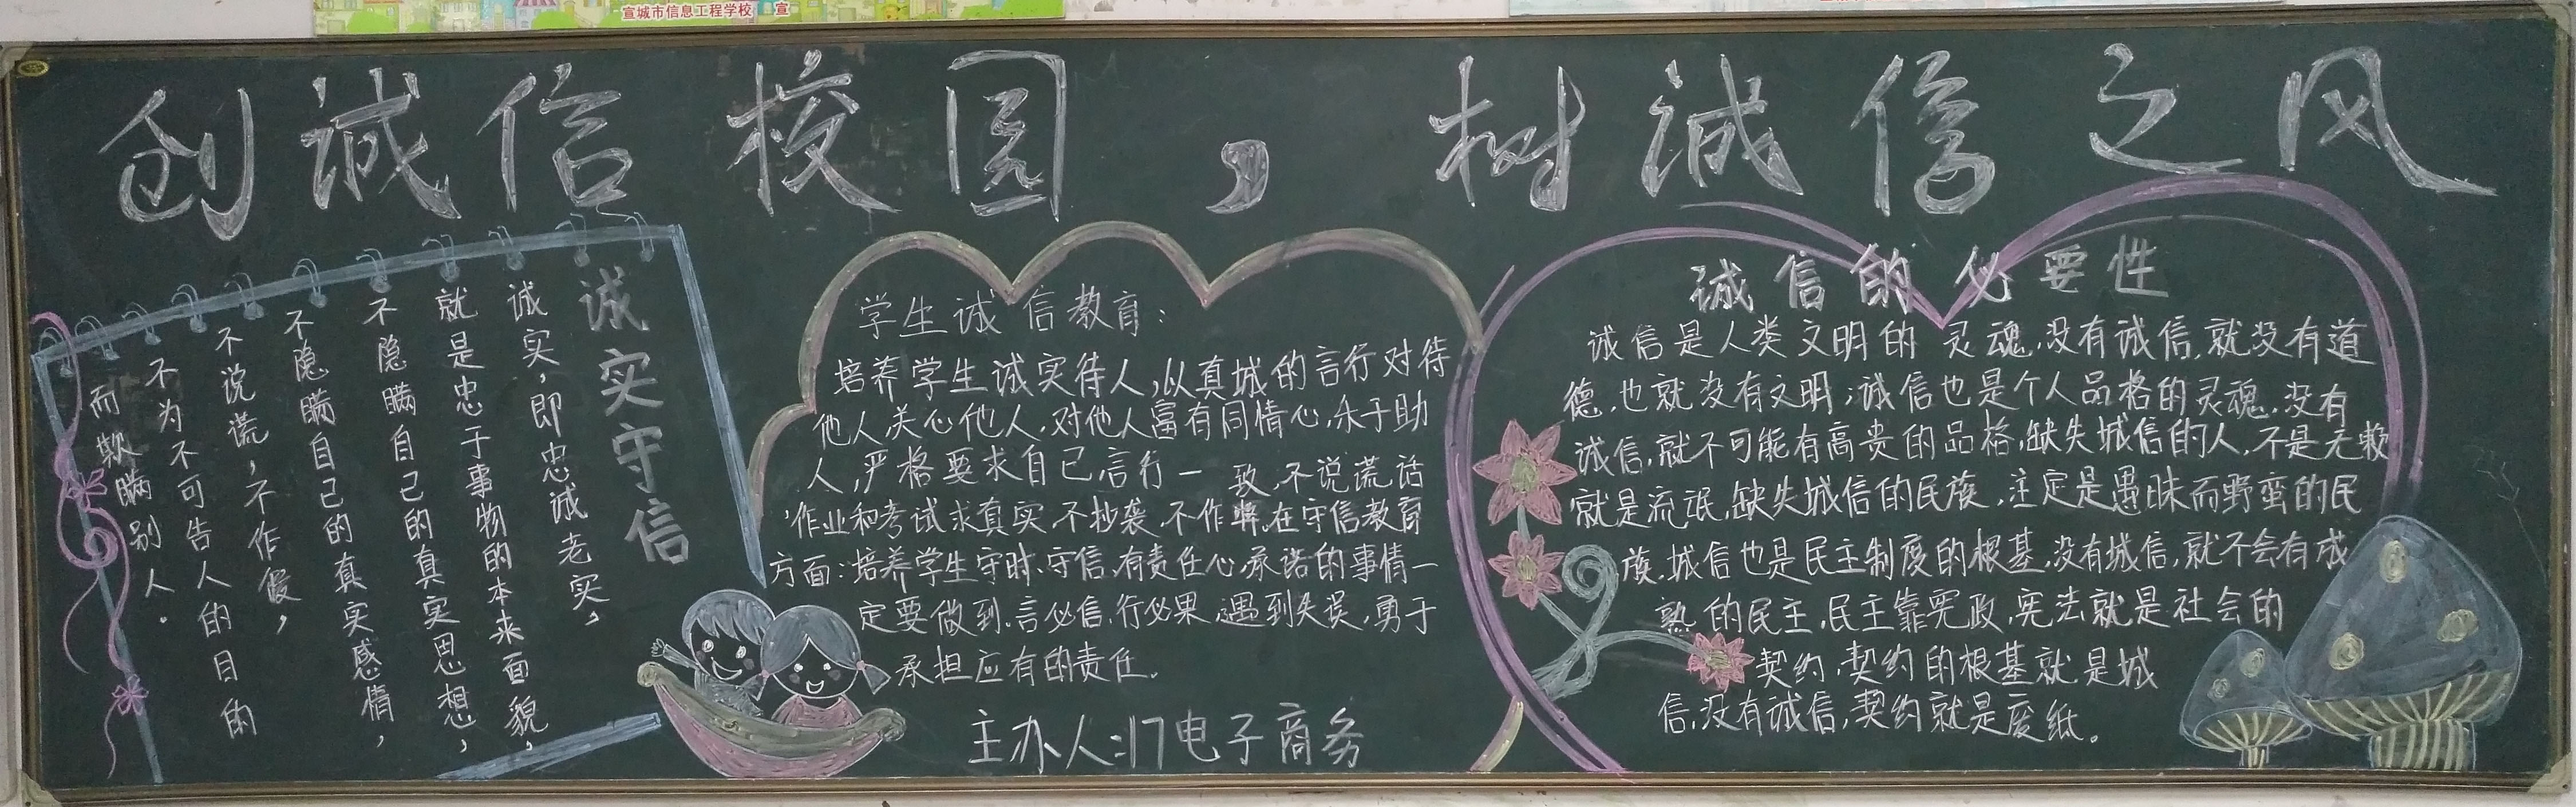 宣城市信息工程学校
宣
创诚信校园，树诚信之风
诚实守信
诚实，即忠诚老实，
就是忠于事物的本来面貌，
不隐瞒自己的真实思想，
不隐瞒自己的真实感情，
不说谎，不作假，
不为不可告人的目的
而欺瞒别人。
学生诚信教育：
培养学生诚实待人，以真城的言行对待
他人关心他人，对他人富有同情心，乐于助
人，严格要求自己，言行一致，不说谎话
作业和考试求真实，不抄袭，不作弊，在守信教育
方面：培养学生守时、守信，有责任心，承诺的事情一
定要做到，言必信，行必果，遇到失误，勇于
承担应有的责任。
主办人：17电子商务
诚信的必要性
诚信是人类文明的灵魂，没有诚信，就没有道
德，也就没有文明；诚信也是个人品格的灵魂，没有
诚信，就不可能有高贵的品格，缺失城信的人，不是无赖
就是流氓，缺失城信的民族，注定是愚昧而野蛮的民
族，城信也是民主制度的根基，没有城信，就不会有成
熟的民主，民主靠宪政，宪法就是社会的
契约，契约的根基就是城
信，没有诚信，契约就是废纸。